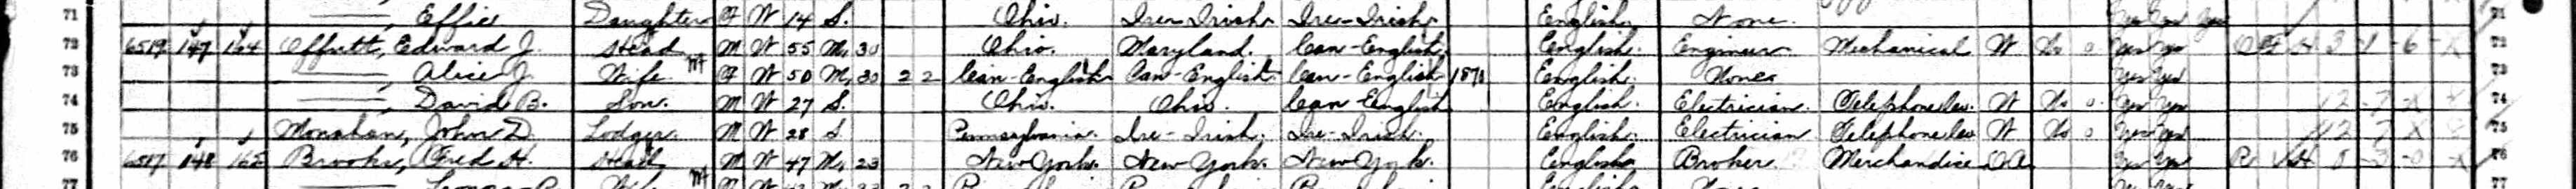 71 Effie Daughter F W 14 S. Ohio. Ire-Irish Ire-Irish English None Yes Yes Yes 71
72 6519 147 164 Offutt, Edward J. Head M W 55 M1 30 Ohio. Maryland. Can-English English. Engineer Mechanical W No 0 Yes Yes OF H 3-1-6-X 72
73 Alice J. Wife F W 50 M1 30 2 2 Can-English Can-English Can-English 1871 English. None Yes Yes 73
74 David B. Son. M W 27 S. Ohio. Ohio. Can English English. Electrician. Telephone W No 0 Yes Yes 12-7-X 74
75 Monahan, John D. Lodger. M W 28 S Pennsylvania. Ire-Irish. Ire-Irish. English. Electrician Telephone W No 0 Yes Yes 12 7 X 75
76 6517 148 165 Brooks, Fred H. Head M W 47 M1 23 New York. New York. New York. English Broker Merchandise OA Yes Yes R H 8-3-0-X 76
77 77